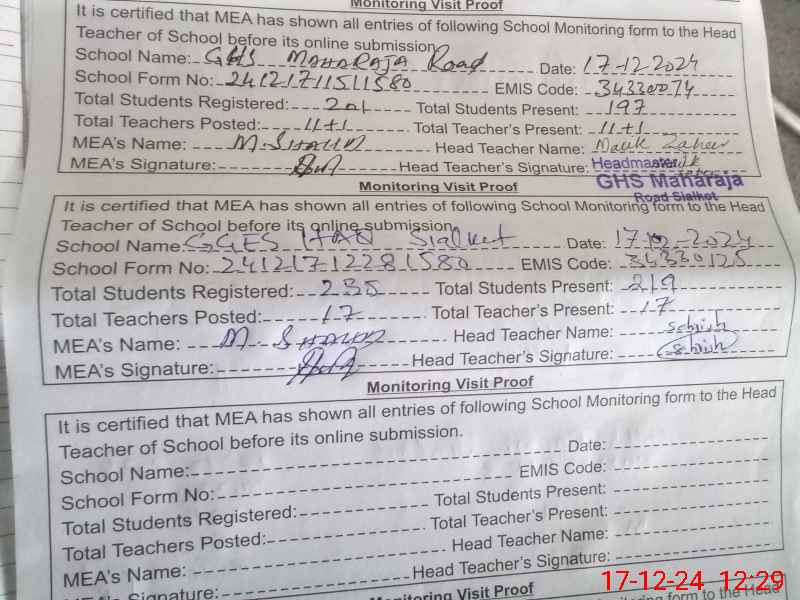 Monitoring Visit Proof
It is certified that MEA has shown all entries of following School Monitoring form to the Head
Teacher of School before its online submission
School Name: GHS MAHARAJA Road Date: 17-12-2024
School Form No: 24121711511580 EMIS Code: 34330074
Total Students Registered: 201 Total Students Present: 197
Total Teachers Posted: 11+1 Total Teacher's Present: 11+1
MEA's Name: M. SHAHID Head Teacher Name: Malik Zaheer
MEA's Signature: Head Teacher's Signature: Headmaster
GHS Maharaja
Road Sialkot
Monitoring Visit Proof
It is certified that MEA has shown all entries of following School Monitoring form to the Head
Teacher of School before its online submission
School Name: GGES Sialkot Date: 17-12-2024
School Form No: 24121712281580 EMIS Code: 34330125
Total Students Registered: 235 Total Students Present: 219
Total Teachers Posted: 17 Total Teacher's Present: 17
MEA's Name: M. SHAHID Head Teacher Name: Sehrish
MEA's Signature: Head Teacher's Signature: Sehrish
Monitoring Visit Proof
It is certified that MEA has shown all entries of following School Monitoring form to the Head
Teacher of School before its online submission.
School Name: Date:
School Form No: EMIS Code:
Total Students Registered: Total Students Present:
Total Teachers Posted: Total Teacher's Present:
MEA's Name: Head Teacher Name:
MEA's Signature: Head Teacher's Signature:
Monitoring Visit Proof
17-12-24 12:29